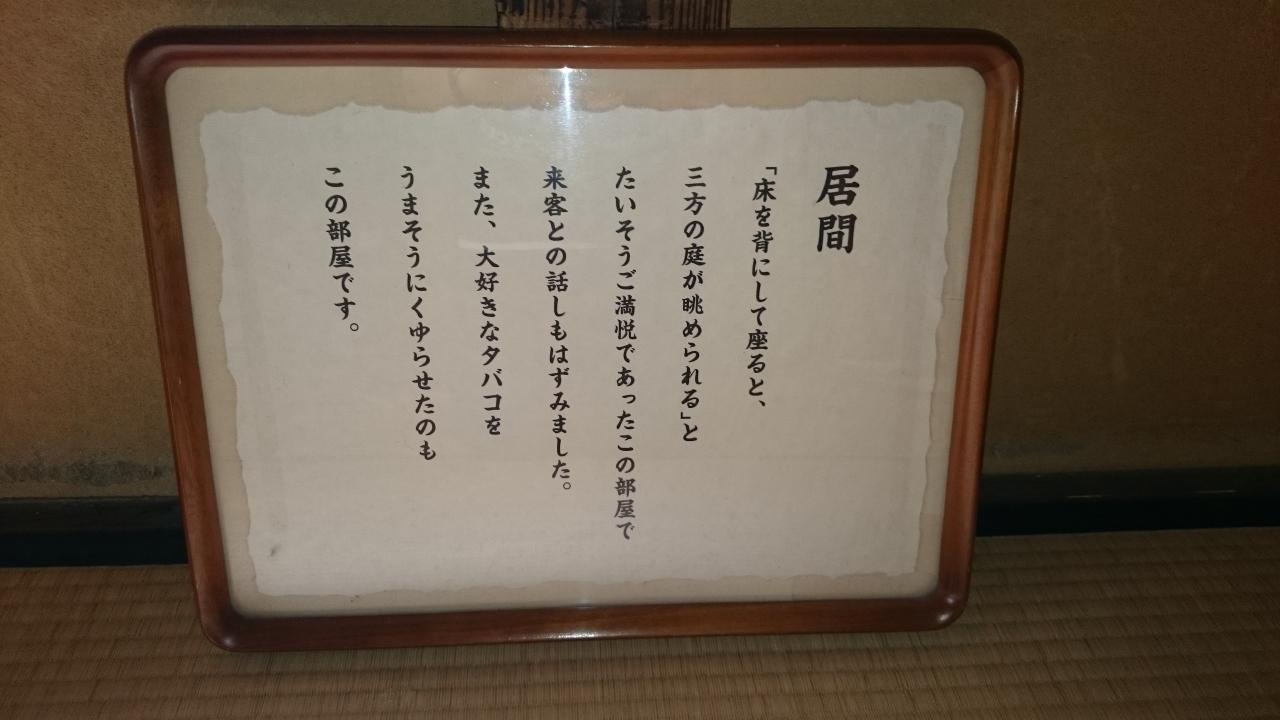 居間
「床を背にして座ると、
三方の庭が眺められる」と
たいそうご満悦であったこの部屋で
来客との話しもはずみました。
また、大好きなタバコを
うまそうにくゆらせたのも
この部屋です。